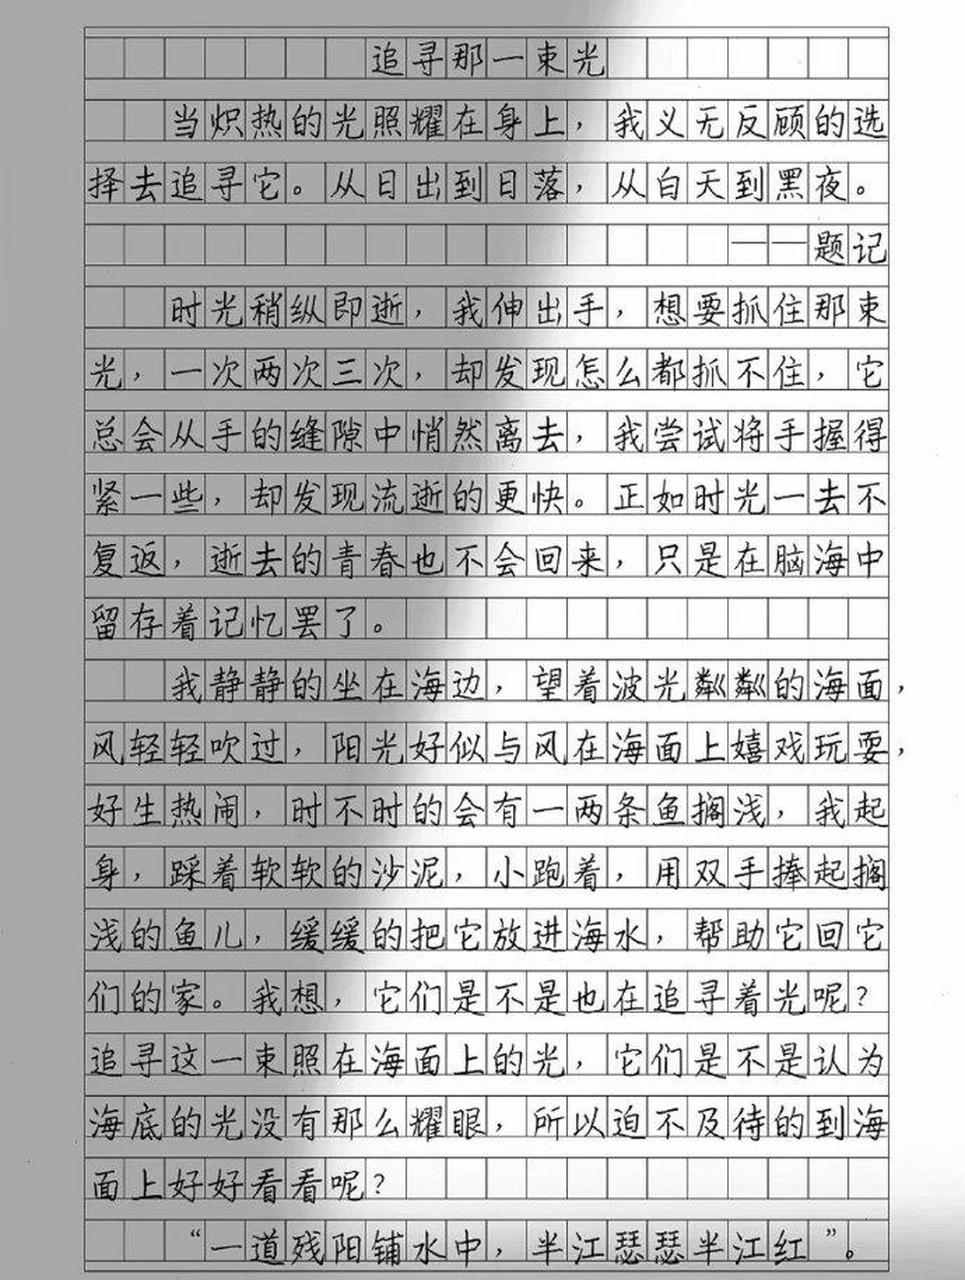 追寻那一束光
当炽热的光照耀在身上，我义无反顾的选
择去追寻它。从日出到日落，从白天到黑夜。
——题记
时光稍纵即逝，我伸出手，想要抓住那束
光，一次两次三次，却发现怎么都抓不住，它
总会从手的缝隙中悄然离去，我尝试将手握得
紧一些，却发现流逝的更快。正如时光一去不
复返，逝去的青春也不会回来，只是在脑海中
留存着记忆罢了。
我静静的坐在海边，望着波光粼粼的海面，
风轻轻吹过，阳光好似与风在海面上嬉戏玩耍，
好生热闹，时不时的会有一两条鱼搁浅，我起
身，踩着软软的沙泥，小跑着，用双手捧起搁
浅的鱼儿，缓缓的把它放进海水，帮助它回它
们的家。我想，它们是不是也在追寻着光呢？
追寻这一束照在海面上的光，它们是不是认为
海底的光没有那么耀眼，所以迫不及待的到海
面上好好看看呢？
“一道残阳铺水中，半江瑟瑟半江红”。